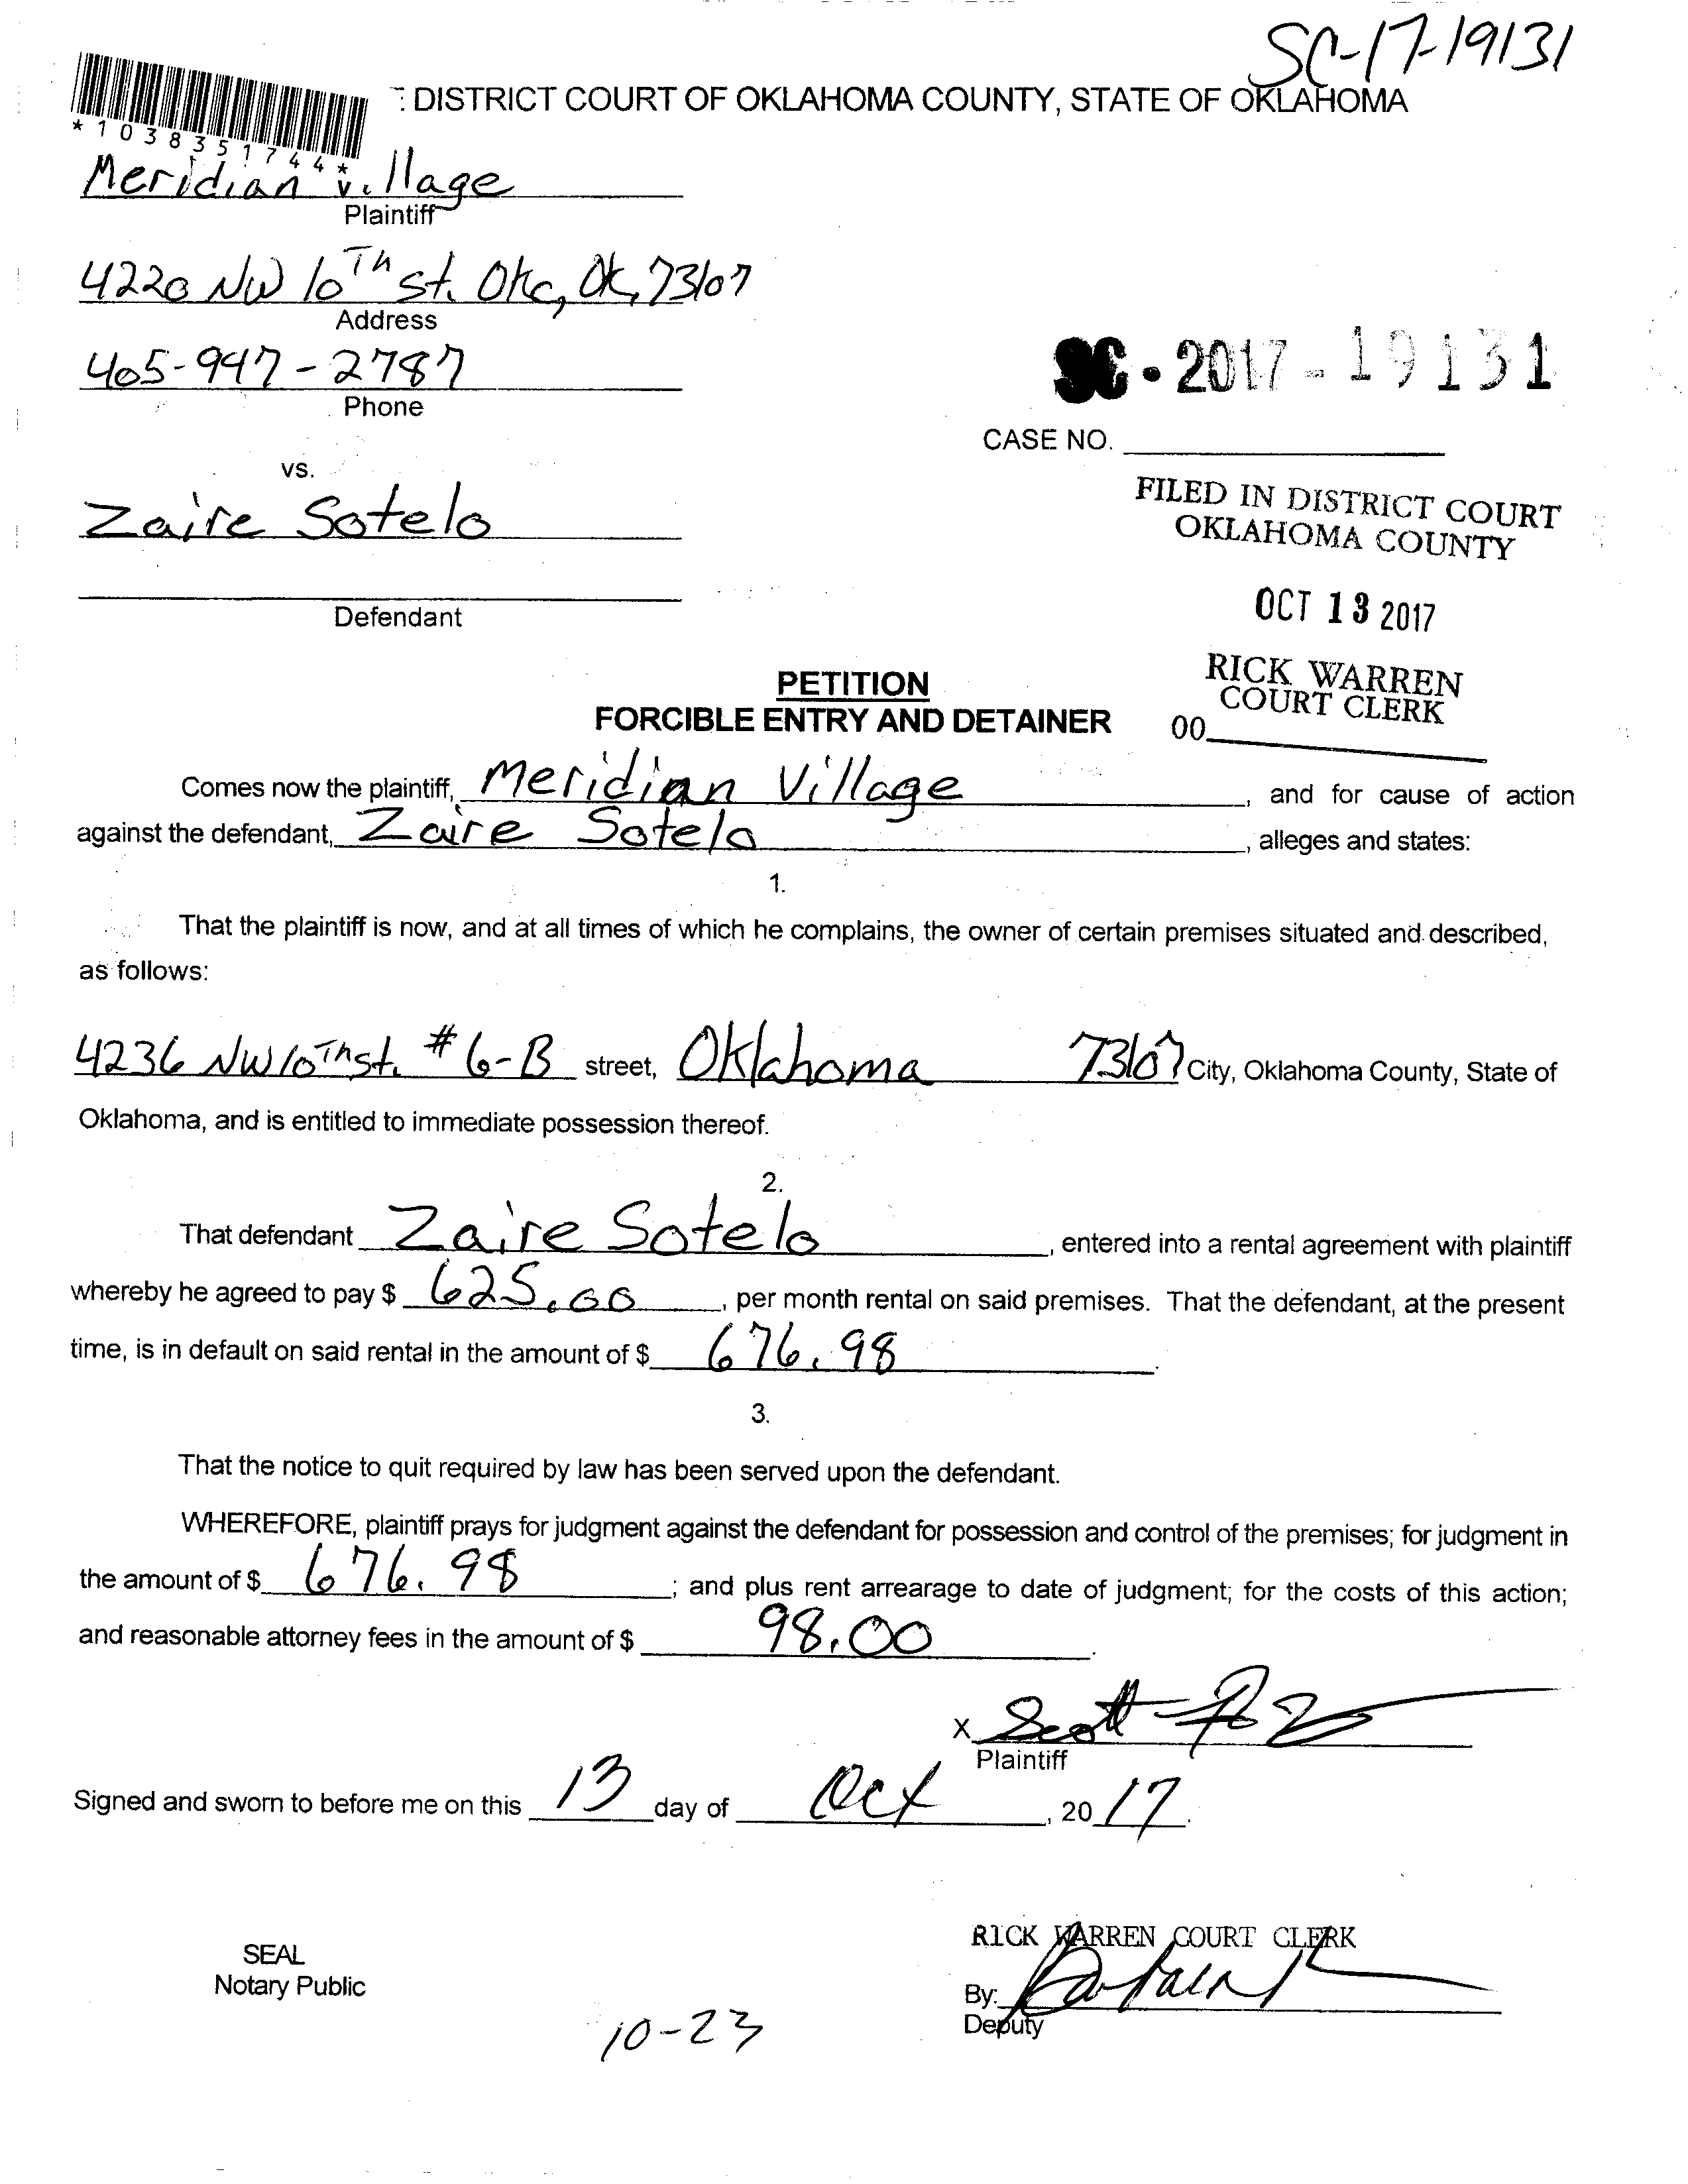 SC-17-19131
DISTRICT COURT OF OKLAHOMA COUNTY, STATE OF OKLAHOMA
*1038351744*
Meridian Village
Plaintiff
4220 NW 10Th St. Okc, Ok, 73107
Address
405-947-2787
Phone
SC-2017-19131
CASE NO.
vs.
Zaire Sotelo
FILED IN DISTRICT COURT
OKLAHOMA COUNTY
Defendant
OCT 13 2017
RICK WARREN
COURT CLERK
00
PETITION
FORCIBLE ENTRY AND DETAINER
Comes now the plaintiff, Meridian Village, and for cause of action
against the defendant, Zaire Sotelo, alleges and states:
1.
That the plaintiff is now, and at all times of which he complains, the owner of certain premises situated and described,
as follows:
4236 NW 10Th st. #6-B street, Oklahoma 73107 City, Oklahoma County, State of
Oklahoma, and is entitled to immediate possession thereof.
2.
That defendant Zaire Sotelo, entered into a rental agreement with plaintiff
whereby he agreed to pay $ 625.00, per month rental on said premises. That the defendant, at the present
time, is in default on said rental in the amount of $ 676.98.
3.
That the notice to quit required by law has been served upon the defendant.
WHEREFORE, plaintiff prays for judgment against the defendant for possession and control of the premises; for judgment in
the amount of $ 676.98; and plus rent arrearage to date of judgment; for the costs of this action;
and reasonable attorney fees in the amount of $ 98.00.
X Scott
Plaintiff
Signed and sworn to before me on this 13 day of Oct, 20 17.
SEAL
Notary Public
RICK WARREN COURT CLERK
By:
Deputy
10-23